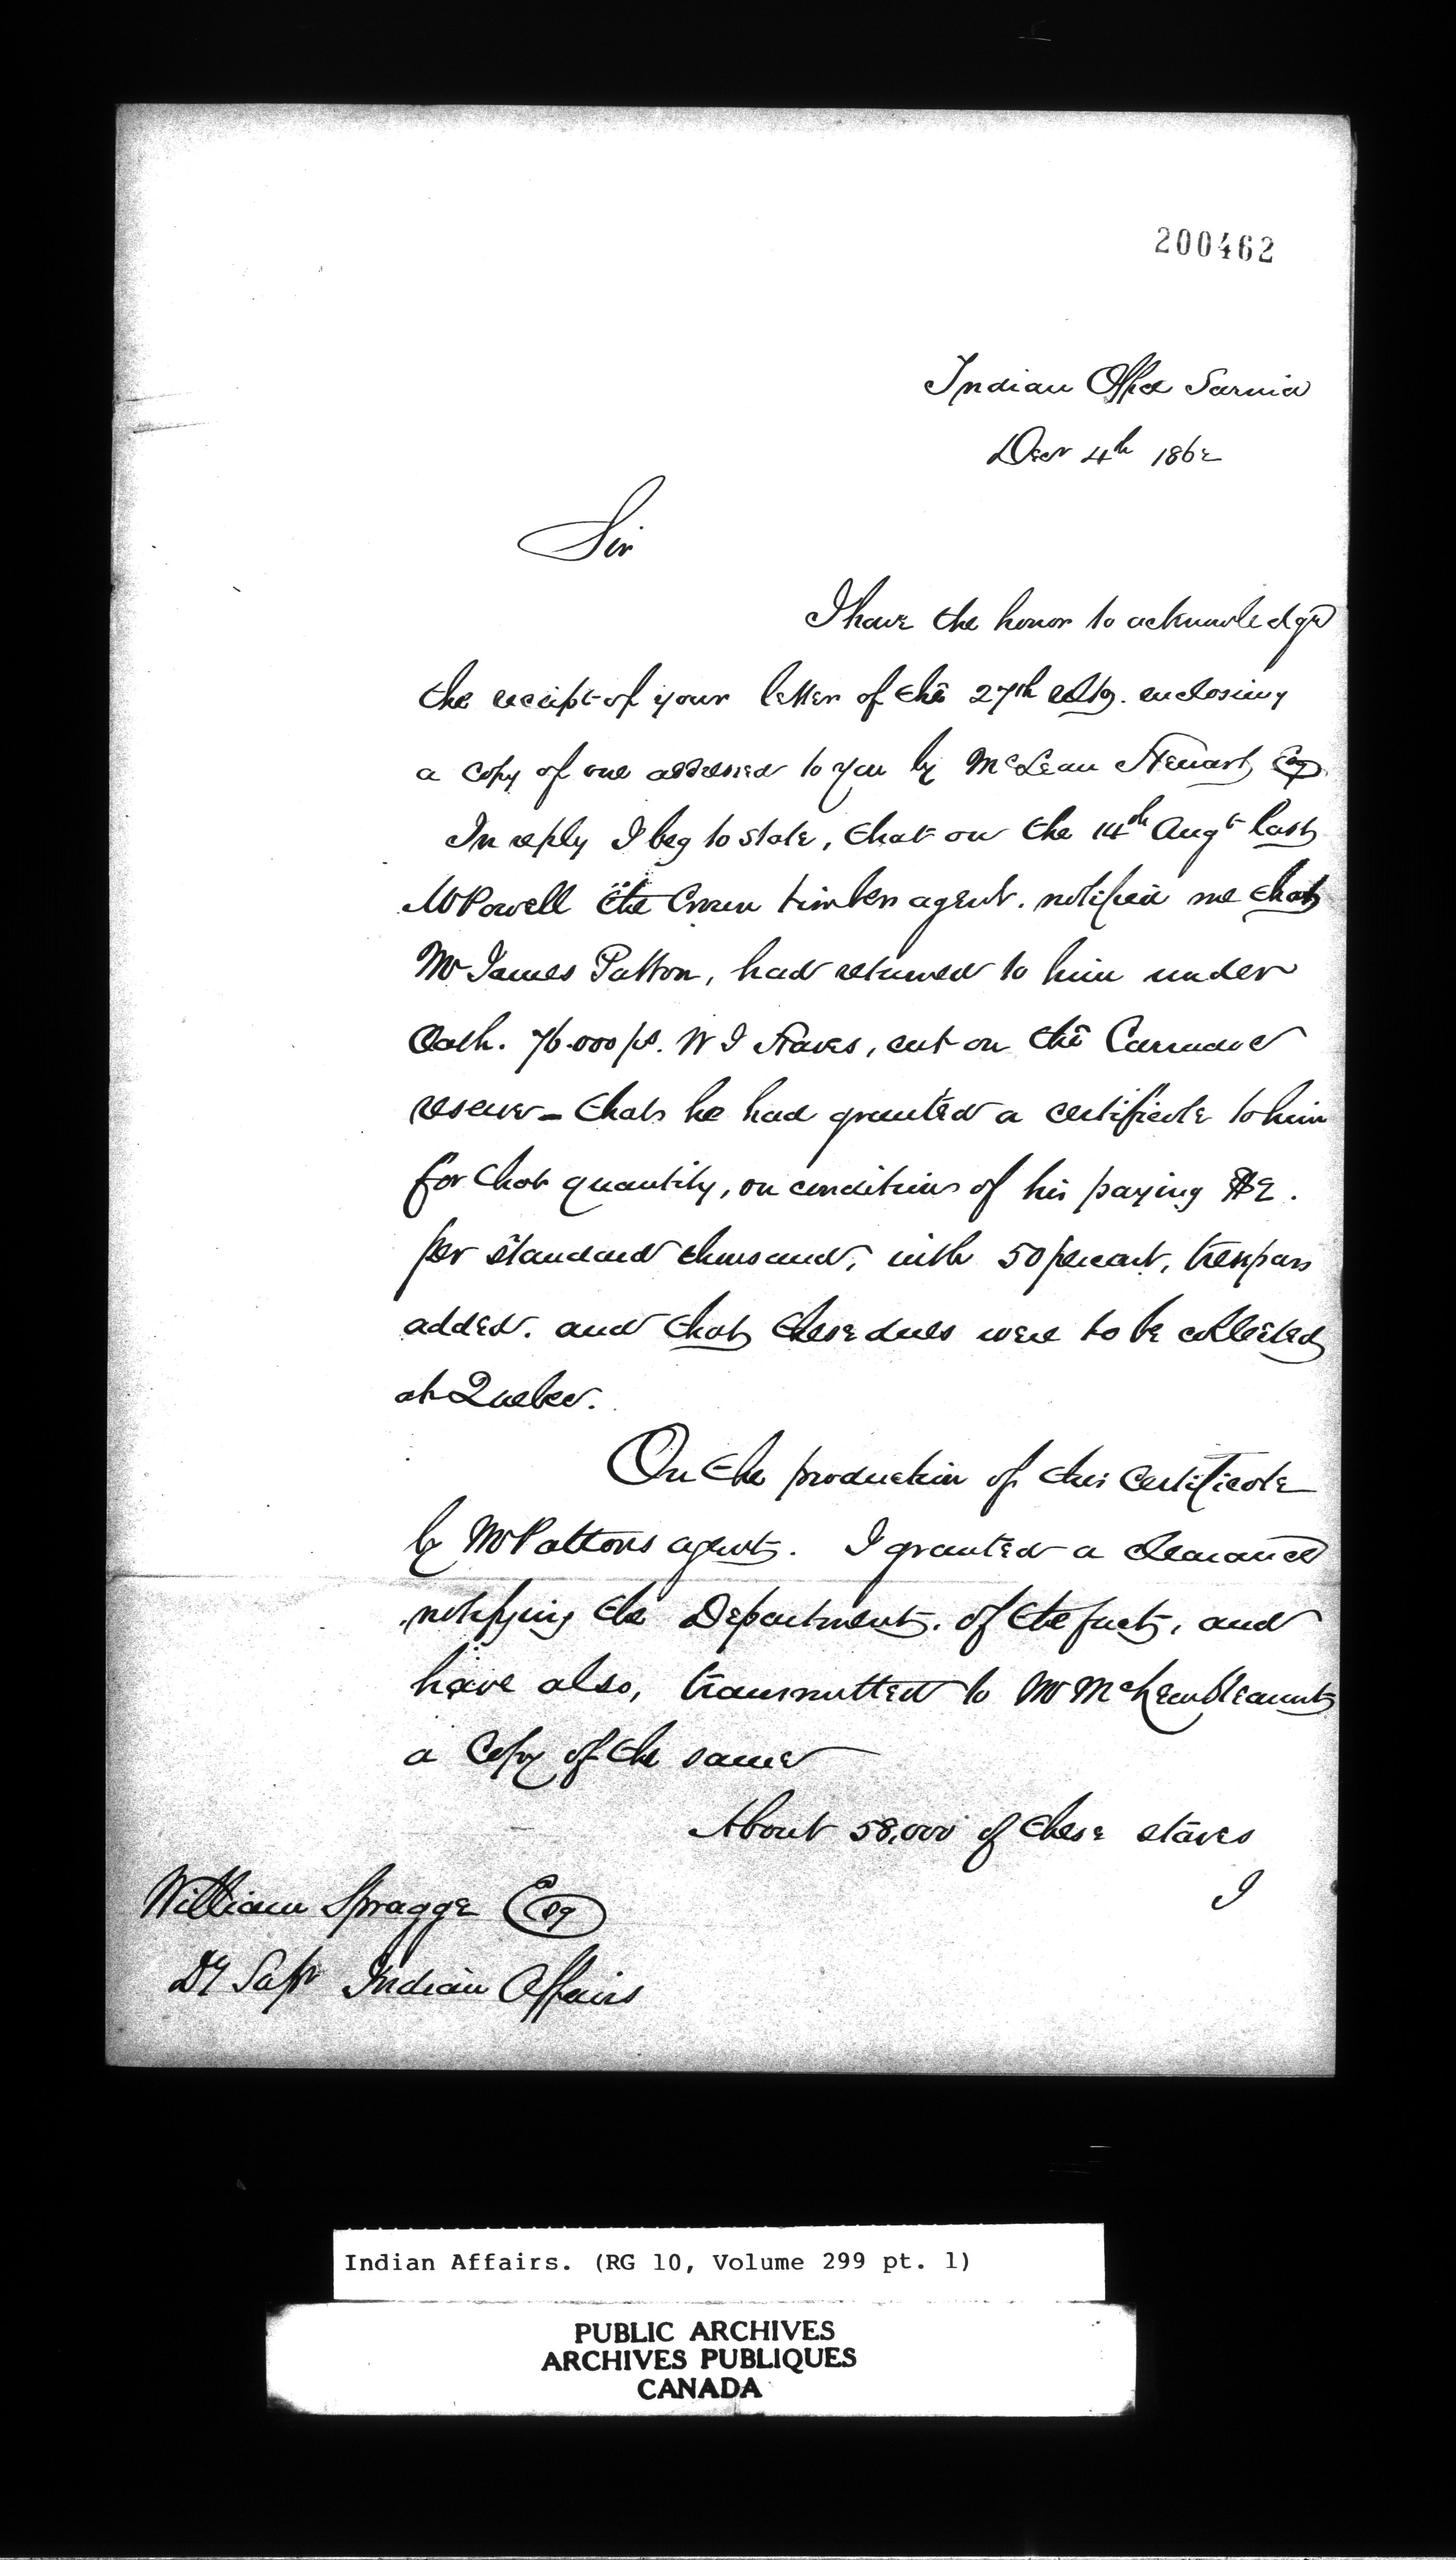 200462
Indian Office Sarnia
Decr 4th 1862
Sir
I have the honor to acknowledge
the receipt of your letter of the 27th ulto. enclosing
a copy of one addressed to you by McLean Stewart Esq
In reply I beg to state, that on the 14th Augt last
Mr Powell the Crown timber agent. notified me that
Mr James Patton, had returned to him under
Oath. 76.000 ps. W I Staves, cut on the Carradoc
reserve - that he had granted a certificate to him
for that quantity, on conditions of his paying $2.
per standard thousand, with 50 percent, trespass
added. and that these dues were to be collected
at Quebec.
On the production of this Certificate
by Mr Pattons agent. I granted a clearance
notifying the Department. of the fact, and
have also, transmitted to Mr McLean Steaunt
a Copy of the same
About 58,000 of these staves
I
William Spragge Esq
Dy Supr Indian Affairs
Indian Affairs. (RG 10, Volume 299 pt. 1)
PUBLIC ARCHIVES
ARCHIVES PUBLIQUES
CANADA